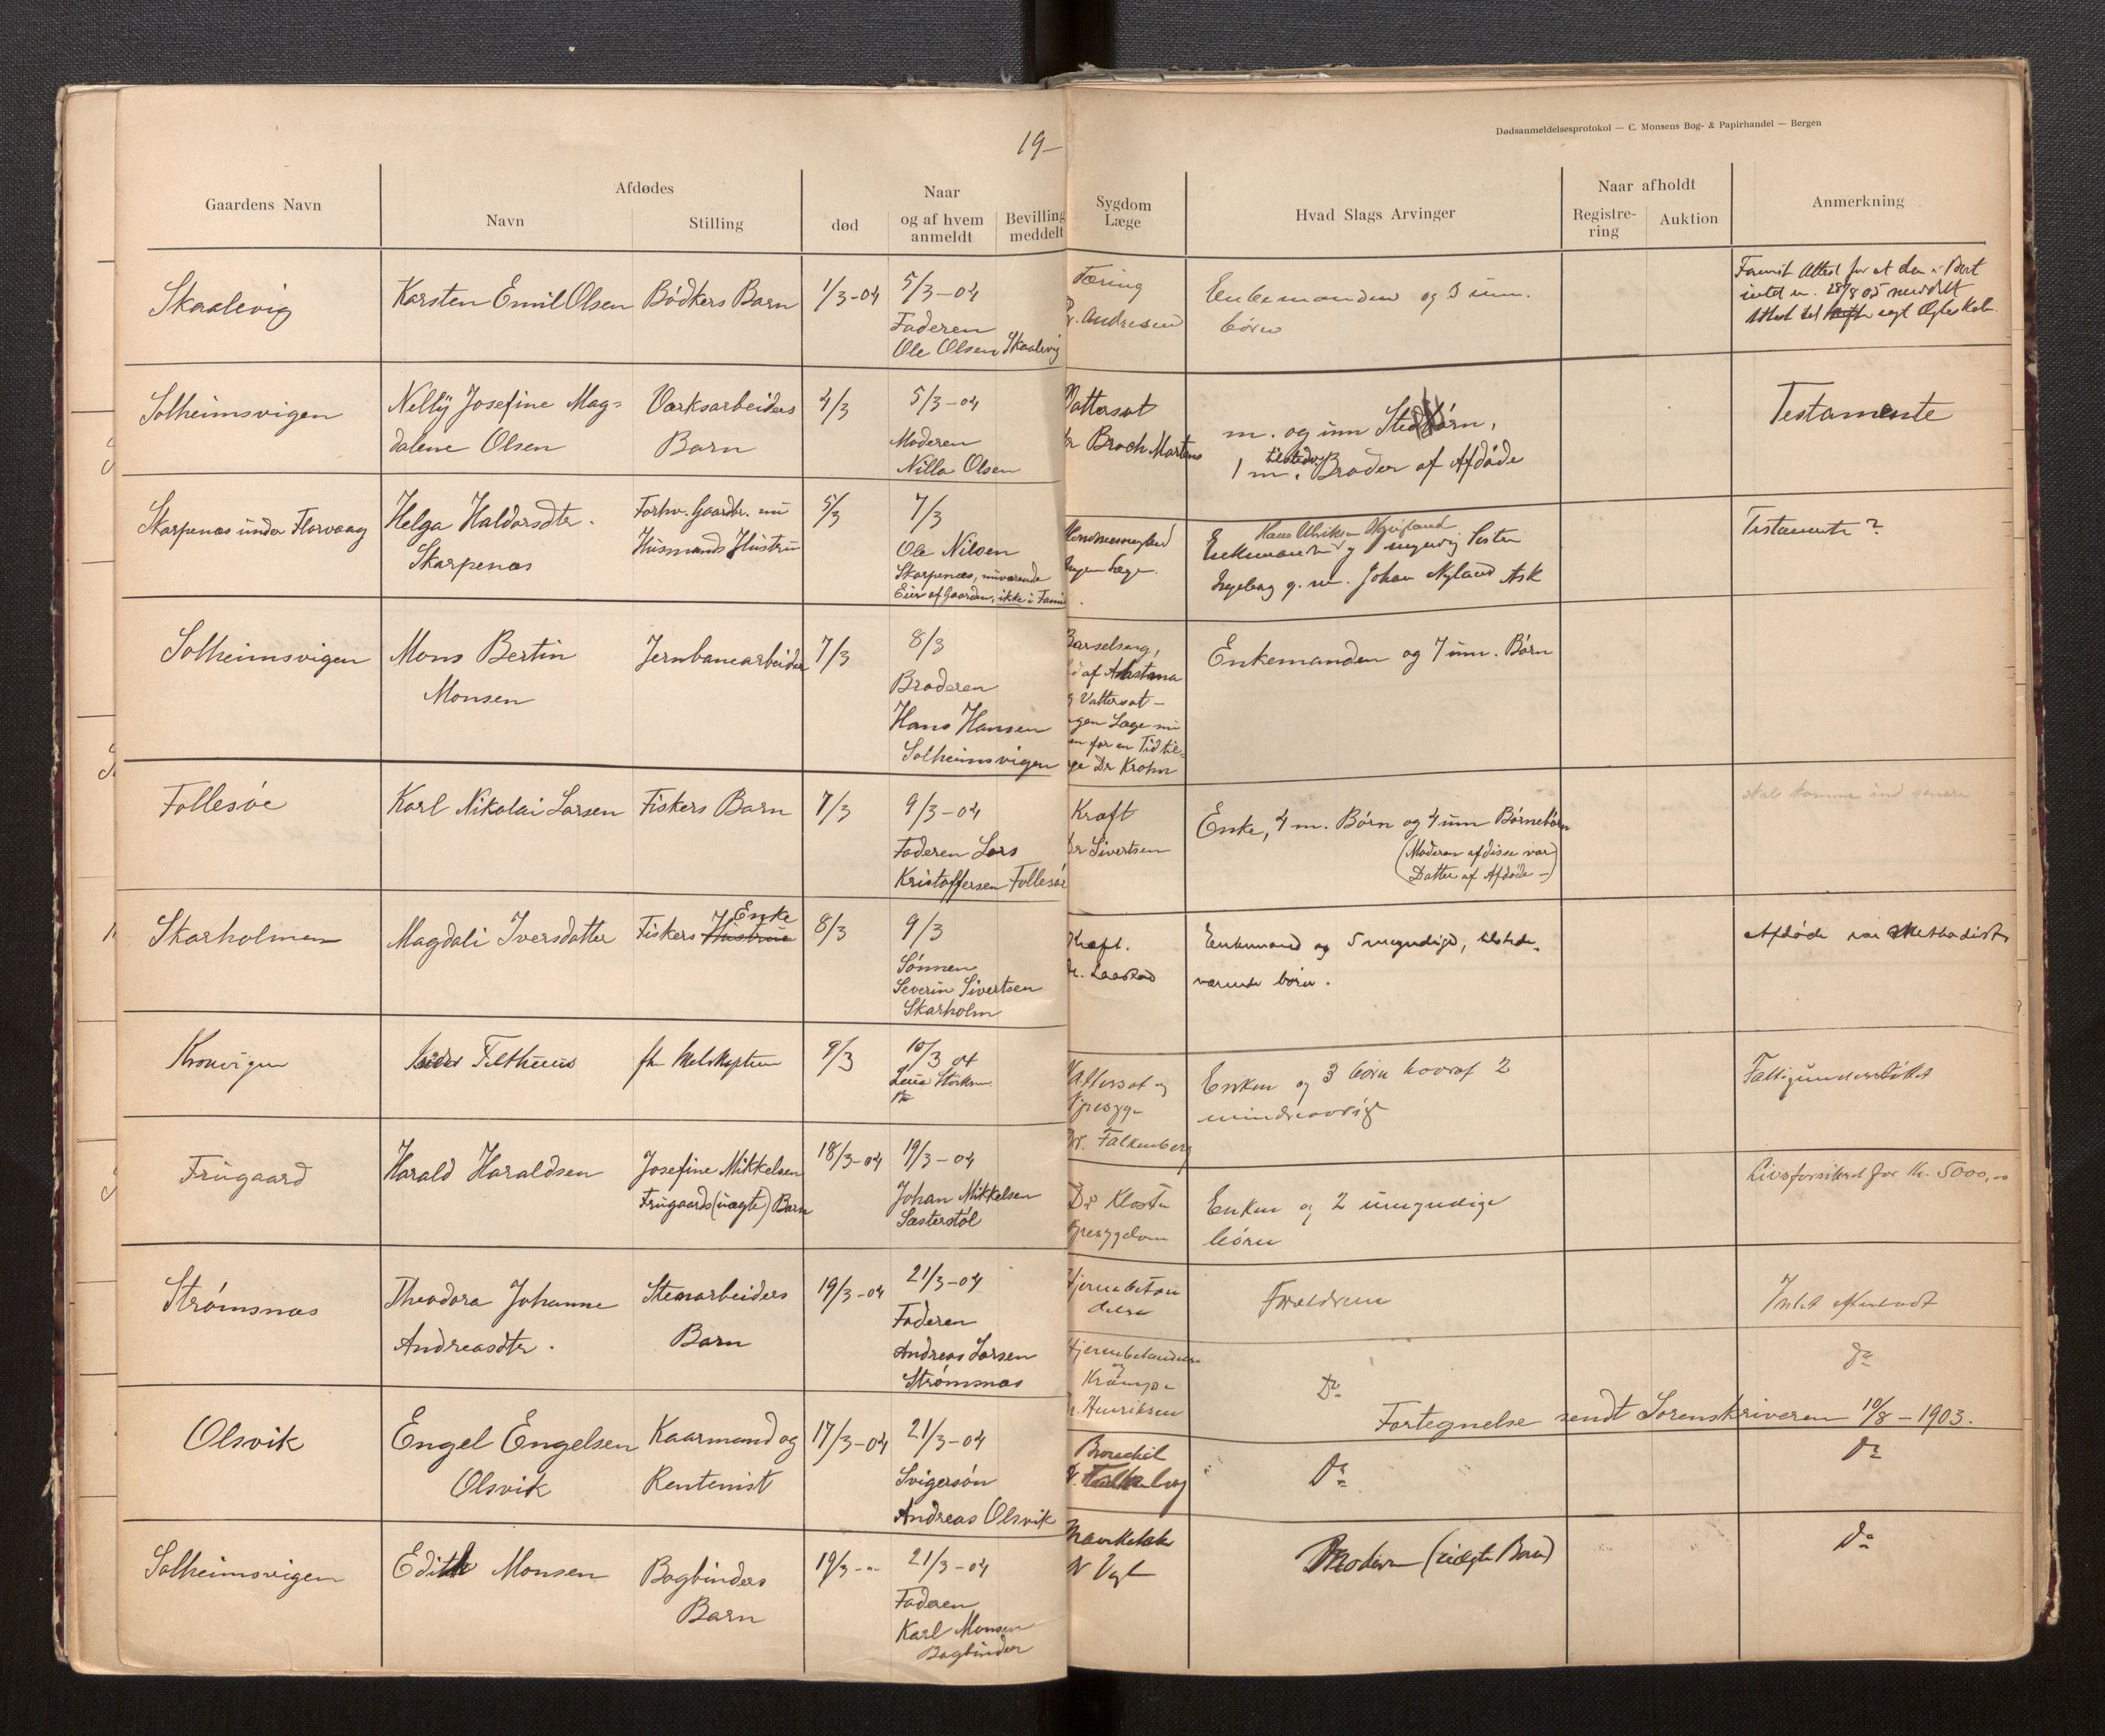 19-
Dødsanmeldelsesprotokol — C. Monsens Bog- & Papirhandel — Bergen
Gaardens Navn
Afdødes
Navn
Stilling
død
Naar
og af hvem
anmeldt
Bevilling
meddelt
Sygdom
Læge
Hvad Slags Arvinger
Naar afholdt
Registre-
ring
Auktion
Anmerkning
Skaalevig
Karsten Emil Olsen
Bødkers Barn
1/3-04
5/3-04
Faderen
Ole Olsen Skaalevig
Solheimsvigen
Nelly Josefine Mag=
dalene Olsen
Værksarbeiders
Barn
4/3
5/3-04
Moderen
Nilla Olsen
Skarpenæs under Florvaag
Helga Haldorsdtr.
Skarpenæs
Forhv. Gaardbr. nu
Husmands Hustru
5/3
7/3
Ole Nilsen
Skarpenæs, nuværende
Eier af Gaarden, ikke i Fami
Solheimsvigen
Mons Bertin
Monsen
Jernbanearbeider
7/3
8/3
Broderen
Hans Hansen
Solheimsvigen
Follesøe
Karl Nikolai Larsen
Fiskers Barn
7/3
9/3-04
Faderen Lars
Kristoffersen Follesøe
Skarholmen
Magdali Iversdatter
Enke
Fiskers Hustrue
8/3
9/3
Sønnen
Severin Sivertsen
Skarholm
Kronvigen
9/3
10/3 04
Frugaard
Harald Haraldsen
Josefine Mikkelsen
Frugaards (uægte) Barn
18/3-04
19/3-04
Johan Mikkelsen
Sæsterstøl
Strømsnæs
Theodora Johanne
Andreasdtr.
Stenarbeiders
Barn
19/3-04
21/3-04
Faderen
Andreas Larsen
Strømsnæs
Olsvik
Engel Engelsen
Olsvik
Kaarmand og
Rentenist
17/3-04
21/3-04
Svigersøn
Andreas Olsvik
Solheimsvigen
Edith Monsen
Bogbinders
Barn
19/3-"-
21/3-04
Faderen
Karl Monsen
Bogbinder
Tæring
Dr. Andresen
Enkemanden og 3 um.
børn
28/8 05 meddelt
Vattersot
Dr Broch Martens
m. og um Stedbørn,
tilstedev
1 m. Broder af Afdøde
Testamente
Læge.
Enkemanden og 1 myndig Søster
Ingeborg g. m. Johan Nyland Ask
Testamente?
Barselseng,
af Asthma
Vattersot -
gen Læge nu
en for en Tid til=
ge Dr Krohn
Enkemanden og 7 um. Børn
Kræft
Dr Sivertsen
Enke, 4 m. Børn og 4 um Børnebørn
(Moderen af disse var
Datter af Afdøde -)
skal komme ind senere
Kræft.
Dr. Laastad
Enkemand og 5 myndige, tilstede-
værende børn.
Afdøde var Methodist
Vattersot og
Dr. Falkenberg
Enken og 3 børn hvoraf 2
mindreaarige
Fattigunderstøttet
Dr Kloster
Enken og 2 umyndige
børn
Livsforsikret for Kr. 5000,00
Hjernebetæn
delse
Forældrene
Intet efterladt
Hjernebetændelse
og
Krampe
Dr. Henriksen
Do
do
Fortegnelse sendt Sorenskriveren 10/8 - 1903.
Bronchit
Dr. Falkenberg
Do
do
Dr Vogt
Moderen (uægte Barn)
do